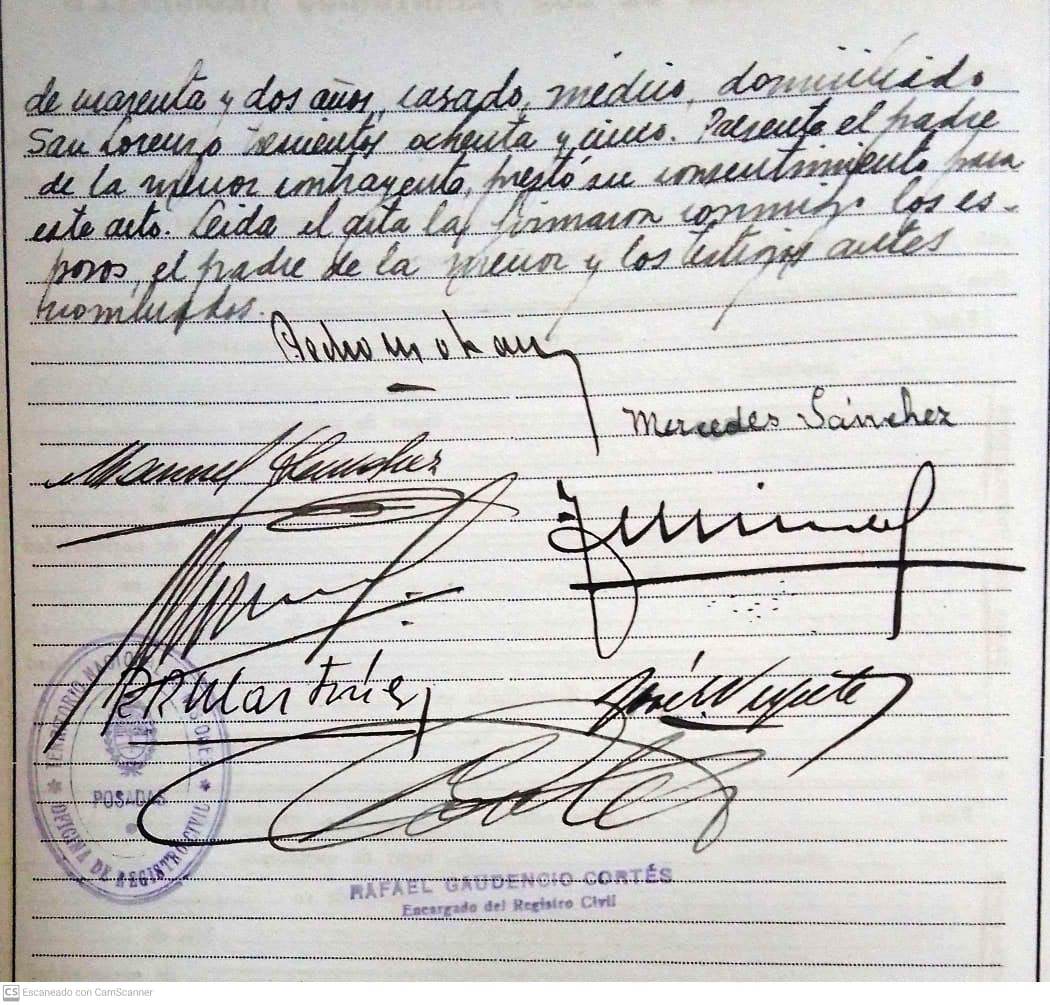 de cuarenta y dos años, casado, médico, domiciliado
San Lorenzo trescientos ochenta y cinco. Presente el padre
de la menor contrayente, prestó su consentimiento para
este acto. Leída el acta la firmaron conmigo los es-
posos, el padre de la menor y los testigos antes
nombrados.
Pedro
Mercedes Sánchez
Manuel Sánchez
Martínez
José
TERRITORIO NACIONAL DE MISIONES
POSADAS
OFICINA DE REGISTRO CIVIL
RAFAEL GAUDENCIO CORTÉS
Encargado del Registro Civil
CS Escaneado con CamScanner